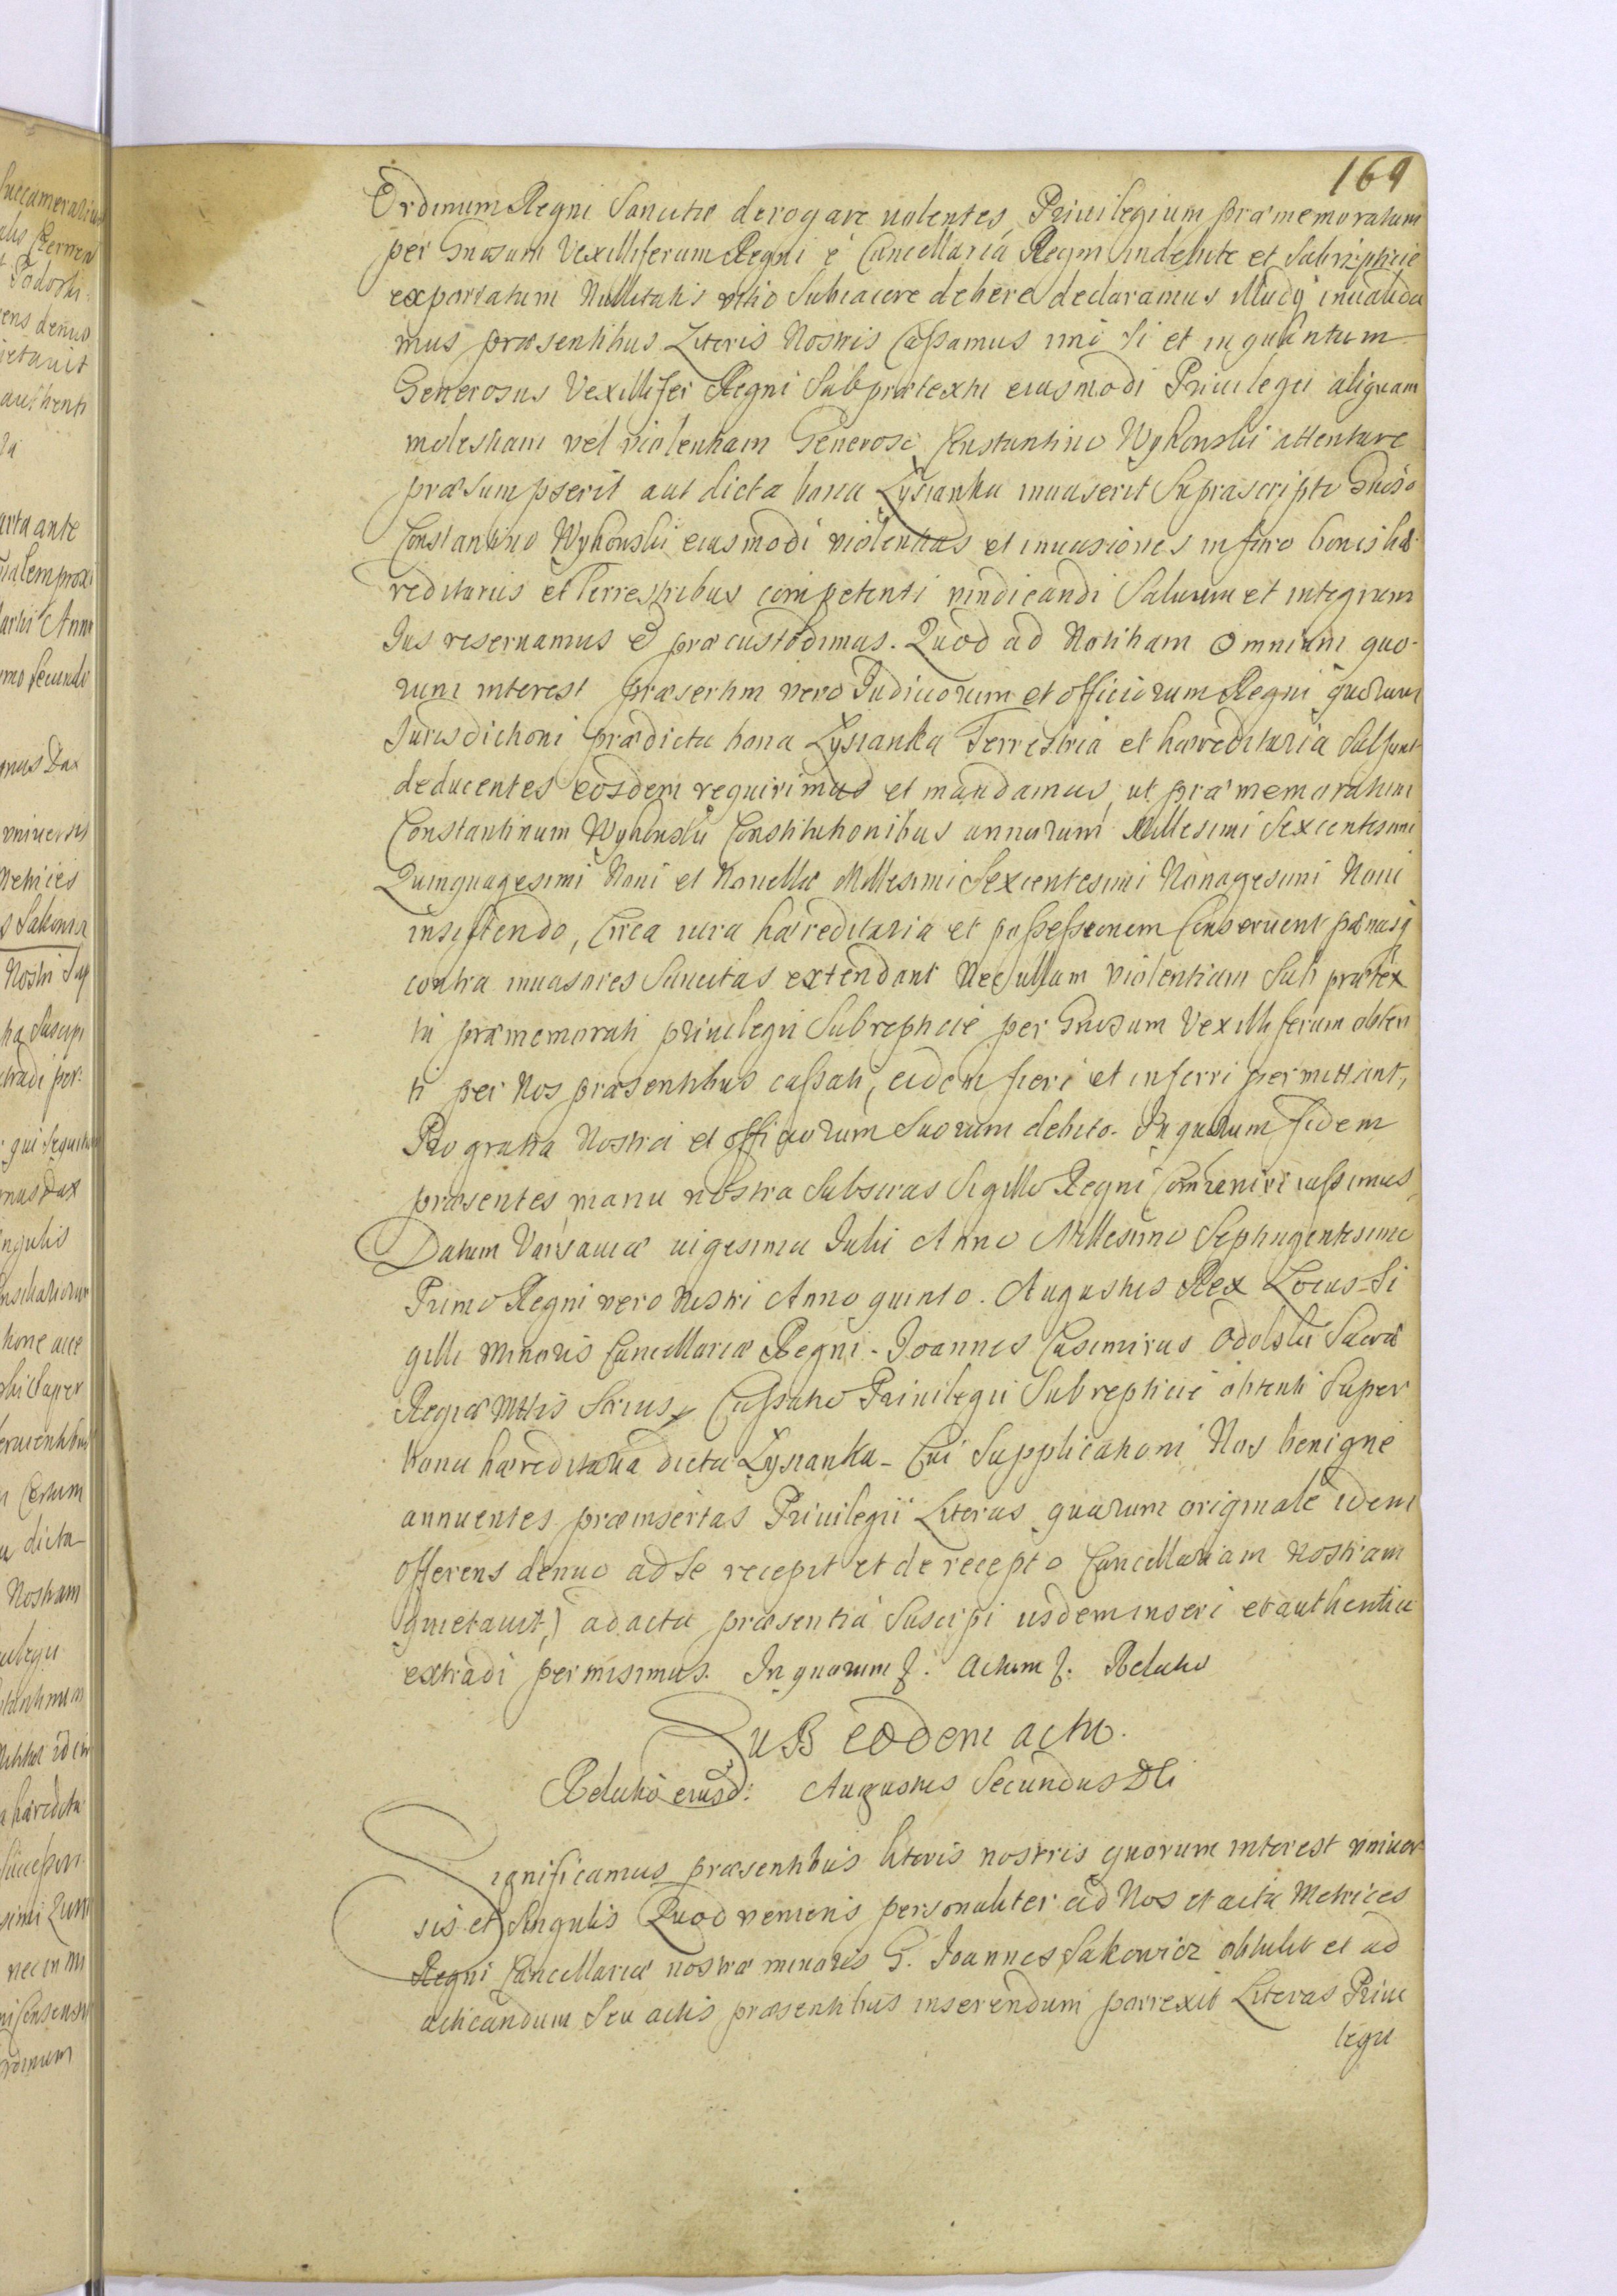 169
Ordinum Regni Sancita derogare nolentes, Privilegium præmemoratum
per Gnosum Vexilliferum Regni è Cancellaria Regni indebite et Subrepticie
exportatum Nullitatis vitio Subiacere debere declaramus illudq́ invalida
mus præsentibus Literis Nostris Caßamus imò Si et inquantum
Generosus Vexillifer Regni Sub prætextu eiusmodi Priuilegii aliquam
molestiam vel violentiam Generoso Constantino Wyhowski attentare
præsumpserit aut dicta bona Łysianka inuaserit Suprascripto Gnoso
Constantino Wyhowski eiusmodi violentias et inuasiones in foro bonis hæ-
reditariis et Terrestribus competenti vindicandi Saluum et integrum
Ius reseruamus et præcustodimus. Quod ad Notitiam omnium quo-
rum interest præsertim vero Iudiciorum et officiorum Regni quorum
Jurisdictioni prædicta bona Łysianka Terrestria et hæreditaria Subsunt
deducentes eosdem requirimus et mandamus, ut præmemoratum
Constantinum Wyhowski Constitutionibus annorum Millesimi Sexcentesimi
Quinquagesimi Noni et Nouellæ Millesimi Sexcentesimi Nonagesimi Noni
insistendo, Circa iura hæreditaria et poßeßionem Conseruent pænasq́
contra inuasores Sancitas extendant Nec ullam violentiam Sub prætex
tu præmemorati priuilegii Subrepticie per Gnosum Vexilliferum obten
ti per Nos præsentibus caßati, eidem fieri et inferri permittant,
Pro gratia Nostra et officiorum Suorum debito. In quorum fidem
præsentes manu nostra Subscras Sigillo Regni Communiri iußimus,
Datum Varsaviæ vigesima Iulii Anno Millesimo Septingentesimo
Primo Regni vero Nostri Anno quinto. Augustus Rex Locus Si
gilli minoris Cancellariæ Regni. Joannes Casimirus Odolski Sacræ
Regiæ Mttis Scrius, Caßatio Priuilegii Subrepticie obtenti Super
bona hæreditaria dicta Łysianka. Cui Supplicationi Nos benigne
annuentes præinsertas Priuilegii Literas (quarum originale idem
offerens denuo ad Se recepit et de recepto Cancellariam nostram
quietauit,) ad acta præsentia Suscipi iisdem inseri et authentice
extradi permisimus. In quorum &. Actum &. Relatio
Sub eodem actu.
Relatio eiusd: Augustus Secundus DG
Significamus præsentibus literis nostris quorum interest vniuer
sis et Singulis Quod veniens personaliter ad Nos et acta Metrices
Regni Cancellariæ nostræ minoris G. Joannes Sakowicz obtulit et ad
acticandum Seu actis præsentibus inserendum porrexit Literas Priui
legii